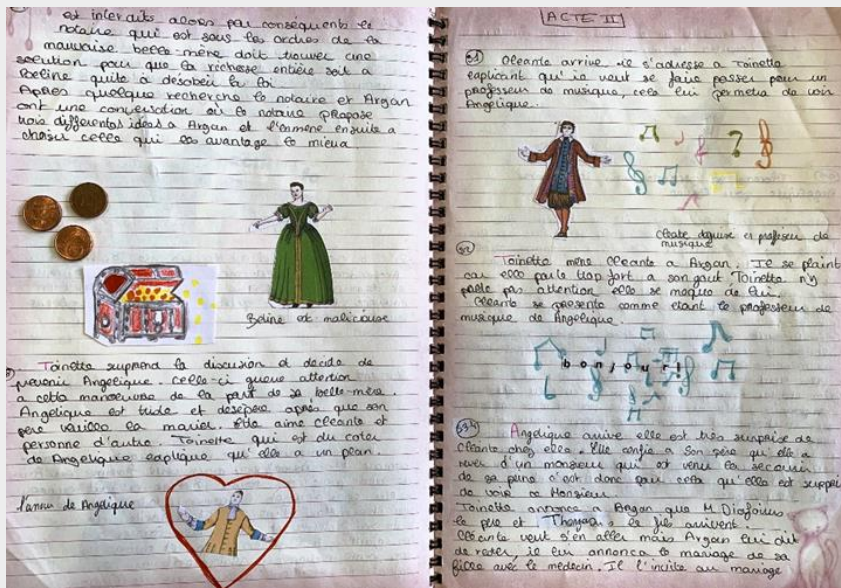 est interdits alors par conséquents le
notaire qui est sous les ordres de la
mauvaise belle-mère doit trouver une
solution pour que la richesse entière soit a
Beline quite à desobeir la loi
Après quelque recherche le notaire et Argan
ont une conversation où le notaire propose
trois differentes idées a Argan et l'emmène ensuite a
choisir celle qui les avantage le mieux
Beline est malicieuse
Toinette surprend la discusion et decide de
prevenir Angelique. Celle-ci attention
a cette manoeuvre de la part de sa belle-mère.
Angelique est triste et desepere après que son
père la marier. Elle aime cleante et
personne d'autre. Toinette qui est du coter
de Angelique explique qu'elle a un plan
l'amu de Angelique
ACTE II
S1 Cleante arrive il s'adresse a Toinette
explicant qu'il veut se faire passer pour un
professeur de musique, cela lui permetra de voir
Angelique.
Cleate deguise en professeur de
musique
S2
Toinette mène Cleante a Argan. Il se plaint
car elle parle trop fort a son gout, Toinette n'y
prete pas attention elle se moque de lui.
Cleante se presente comme etant le professeur de
musique de Angelique.
bonjour!
S3-4
Angelique arrive elle est très surprise de
Cleante chez elle. Elle confie a son père qu'elle a
rever d'un monsieur qui est venu la secourir
de sa peine c'est donc pour cela qu'elle est surprise
de voir ce Monsieur.
Toinette annonce a Argan que M. Diafoirus
le père et Thomas le fils arrivent.
Cleante veut s'en aller mais Argan lui dit
de rester, il lui annonce le mariage de sa
fille avec le medecin. Il l'incite au mariage